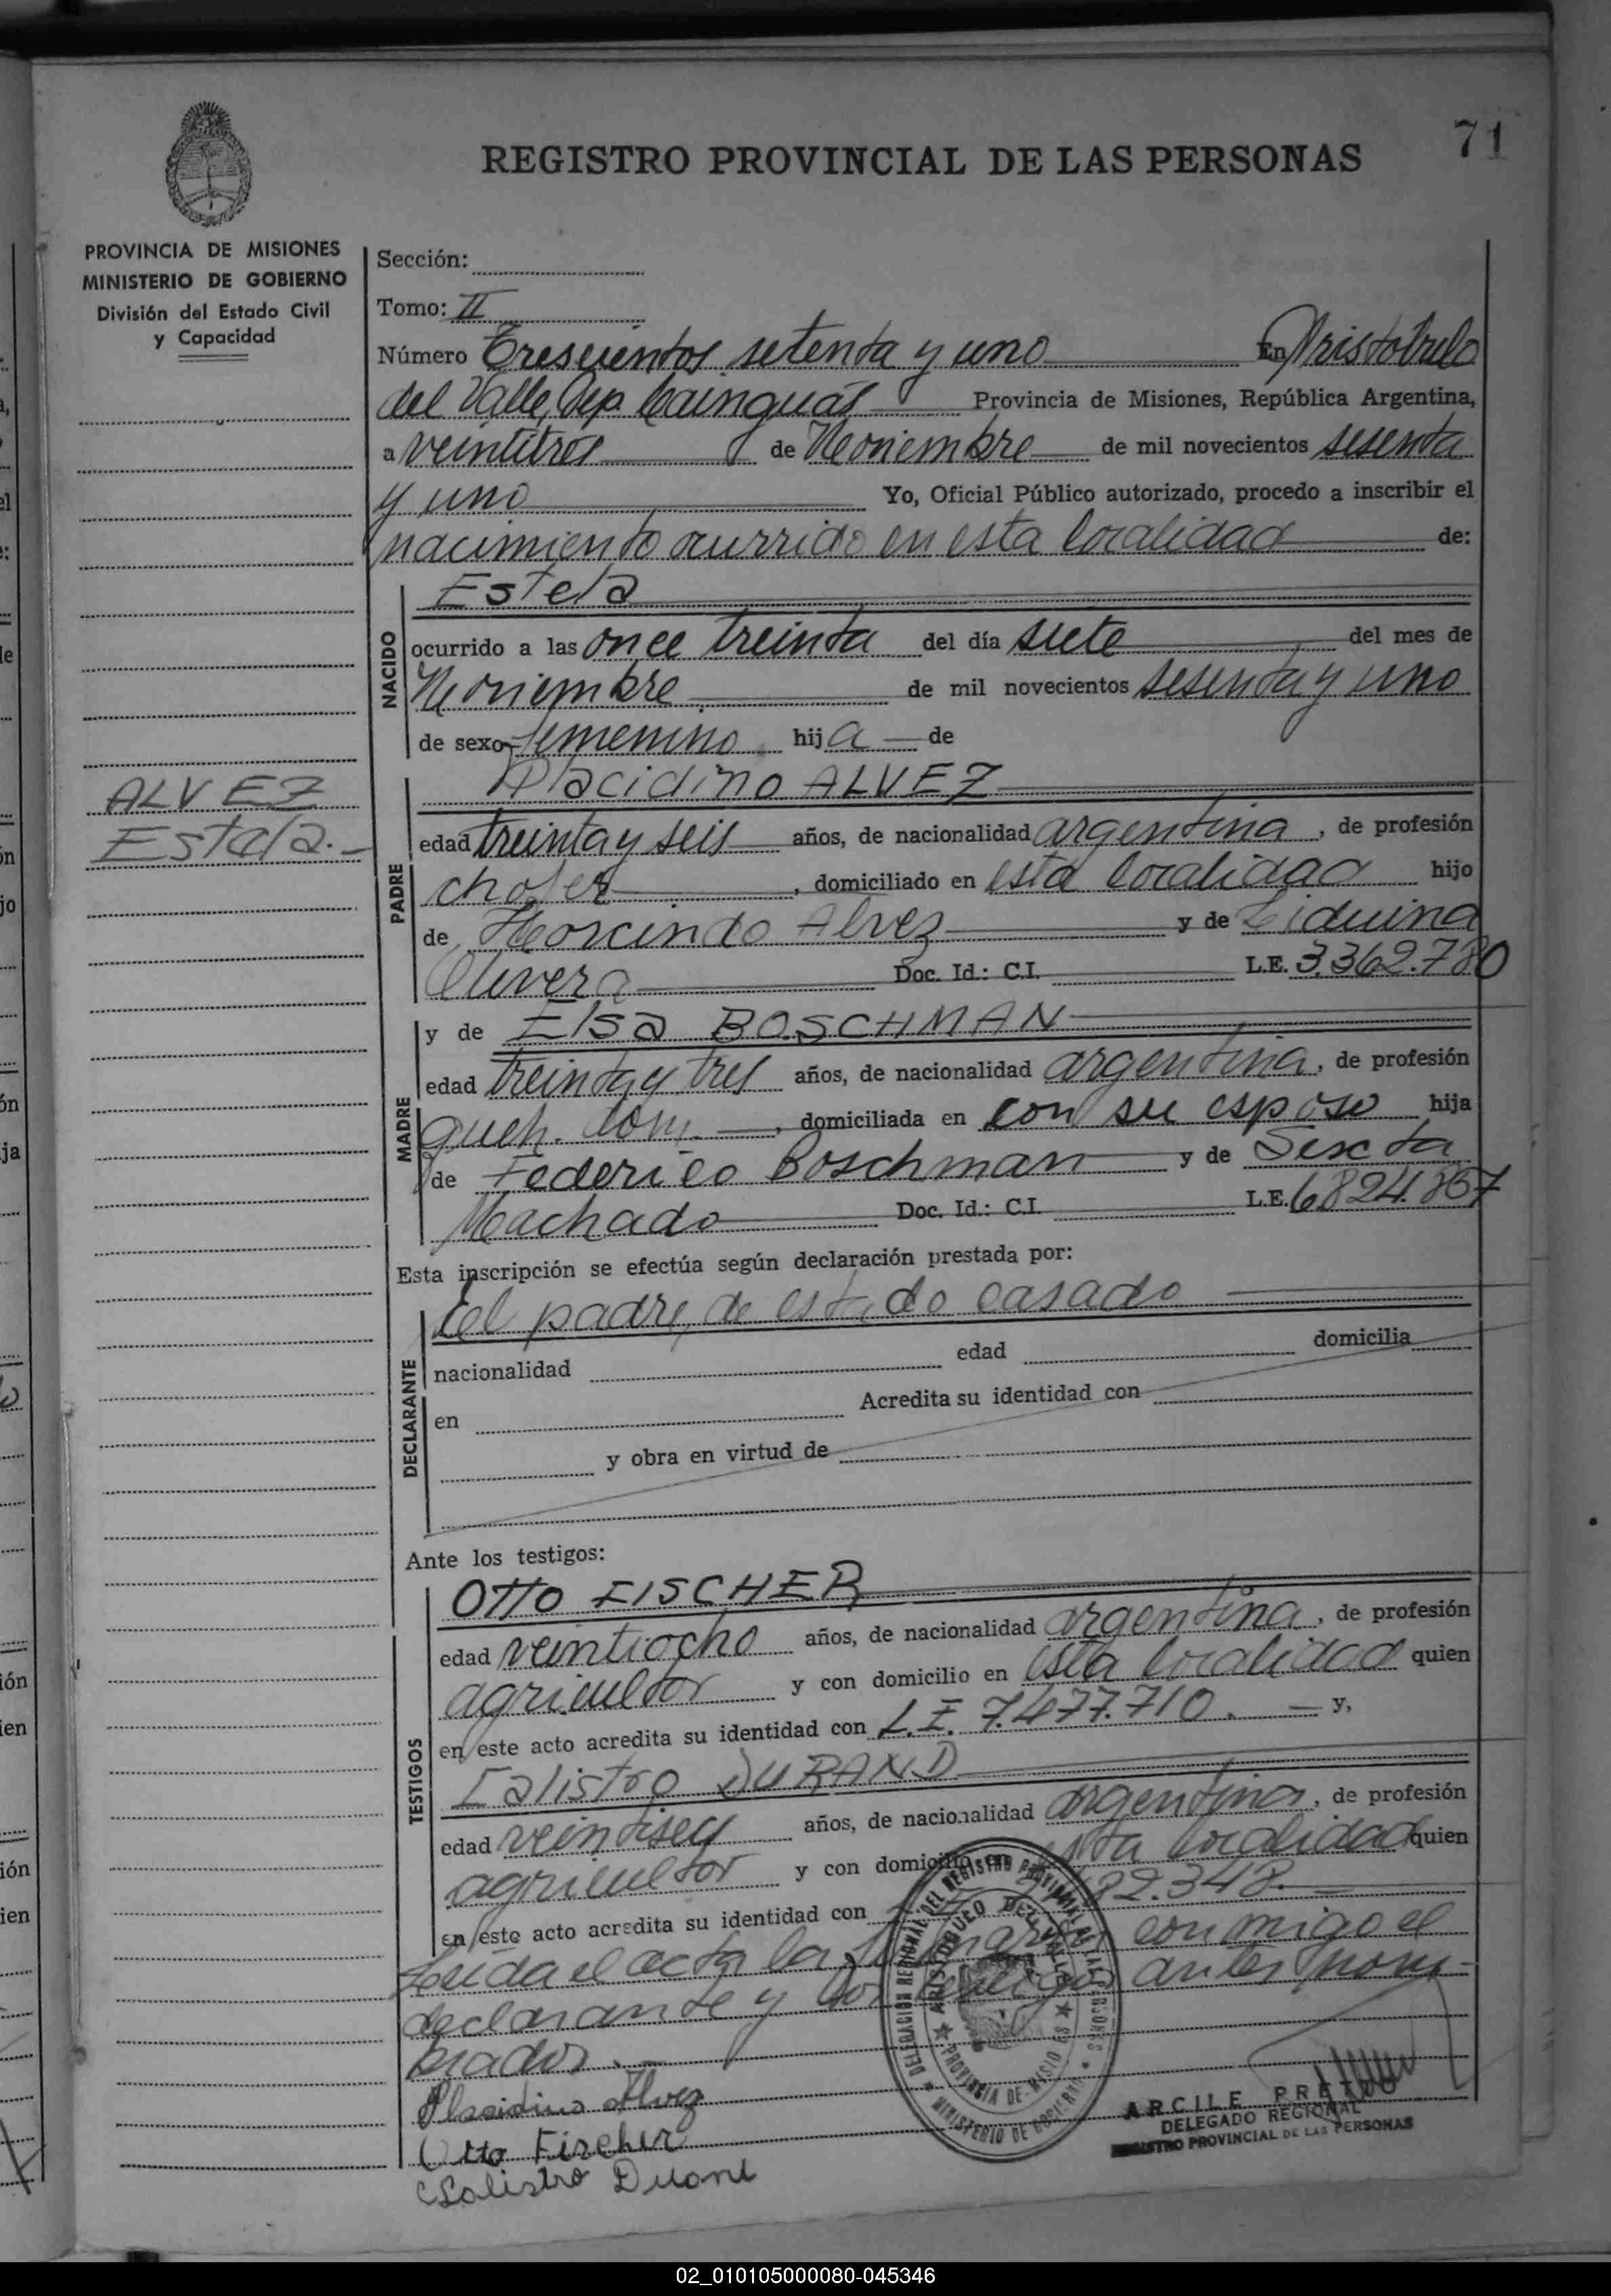 71
REGISTRO PROVINCIAL DE LAS PERSONAS
PROVINCIA DE MISIONES
MINISTERIO DE GOBIERNO
División del Estado Civil
y Capacidad
ALVEZ
Estela.-
Sección:
Tomo: II
Número Trescientos setenta y uno En Aristobulo
del Valle, Dep. Cainguás Provincia de Misiones, República Argentina,
a veintitres de Noviembre de mil novecientos sesenta
y uno Yo, Oficial Público autorizado, procedo a inscribir el
nacimiento ocurrido en esta localidad de:
NACIDO
Estela
ocurrido a las once treinta del día siete del mes de
Noviembre de mil novecientos sesenta y uno
de sexo femenino hija de
PADRE
Placidino ALVEZ
edad treinta y seis años, de nacionalidad argentina, de profesión
chofer, domiciliado en esta localidad hijo
de Alvez y de Liduina
Olivera Doc. Id.: C.I. L.E. 3.362.780
MADRE
y de Elsa BOSCHMAN
edad treinta y tres años, de nacionalidad argentina, de profesión
queh. dom., domiciliada en con su esposo hija
de Federico Boschman y de Sexta
Machado Doc. Id.: C.I. L.E. 6.824.867
Esta inscripción se efectúa según declaración prestada por:
DECLARANTE
el padre, de estado casado
nacionalidad edad domicilia
en Acredita su identidad con
y obra en virtud de
Ante los testigos:
TESTIGOS
OTTO FISCHER
edad veintiocho años, de nacionalidad argentina, de profesión
agricultor y con domicilio en esta localidad quien
en este acto acredita su identidad con L.E. 7.477.710. y,
Calistro DURAND
edad veintiseis años, de nacionalidad argentina, de profesión
agricultor y con domicilio en esta localidad quien
en este acto acredita su identidad con 82.348.-
Leida el acta la firmaron conmigo el
declarante y los testigos antes nom-
brados.-
Placidino Alvez
Otto Fischer
Calistro
DELEGACIÓN REGIONAL DEL REGISTRO PROVINCIAL DE LAS PERSONAS
ARISTOBULO DEL VALLE
PROVINCIA DE MISIONES
MINISTERIO DE GOBIERNO
ARCILE
DELEGADO REGIONAL
REGISTRO PROVINCIAL DE LAS PERSONAS
02_010105000080-045346